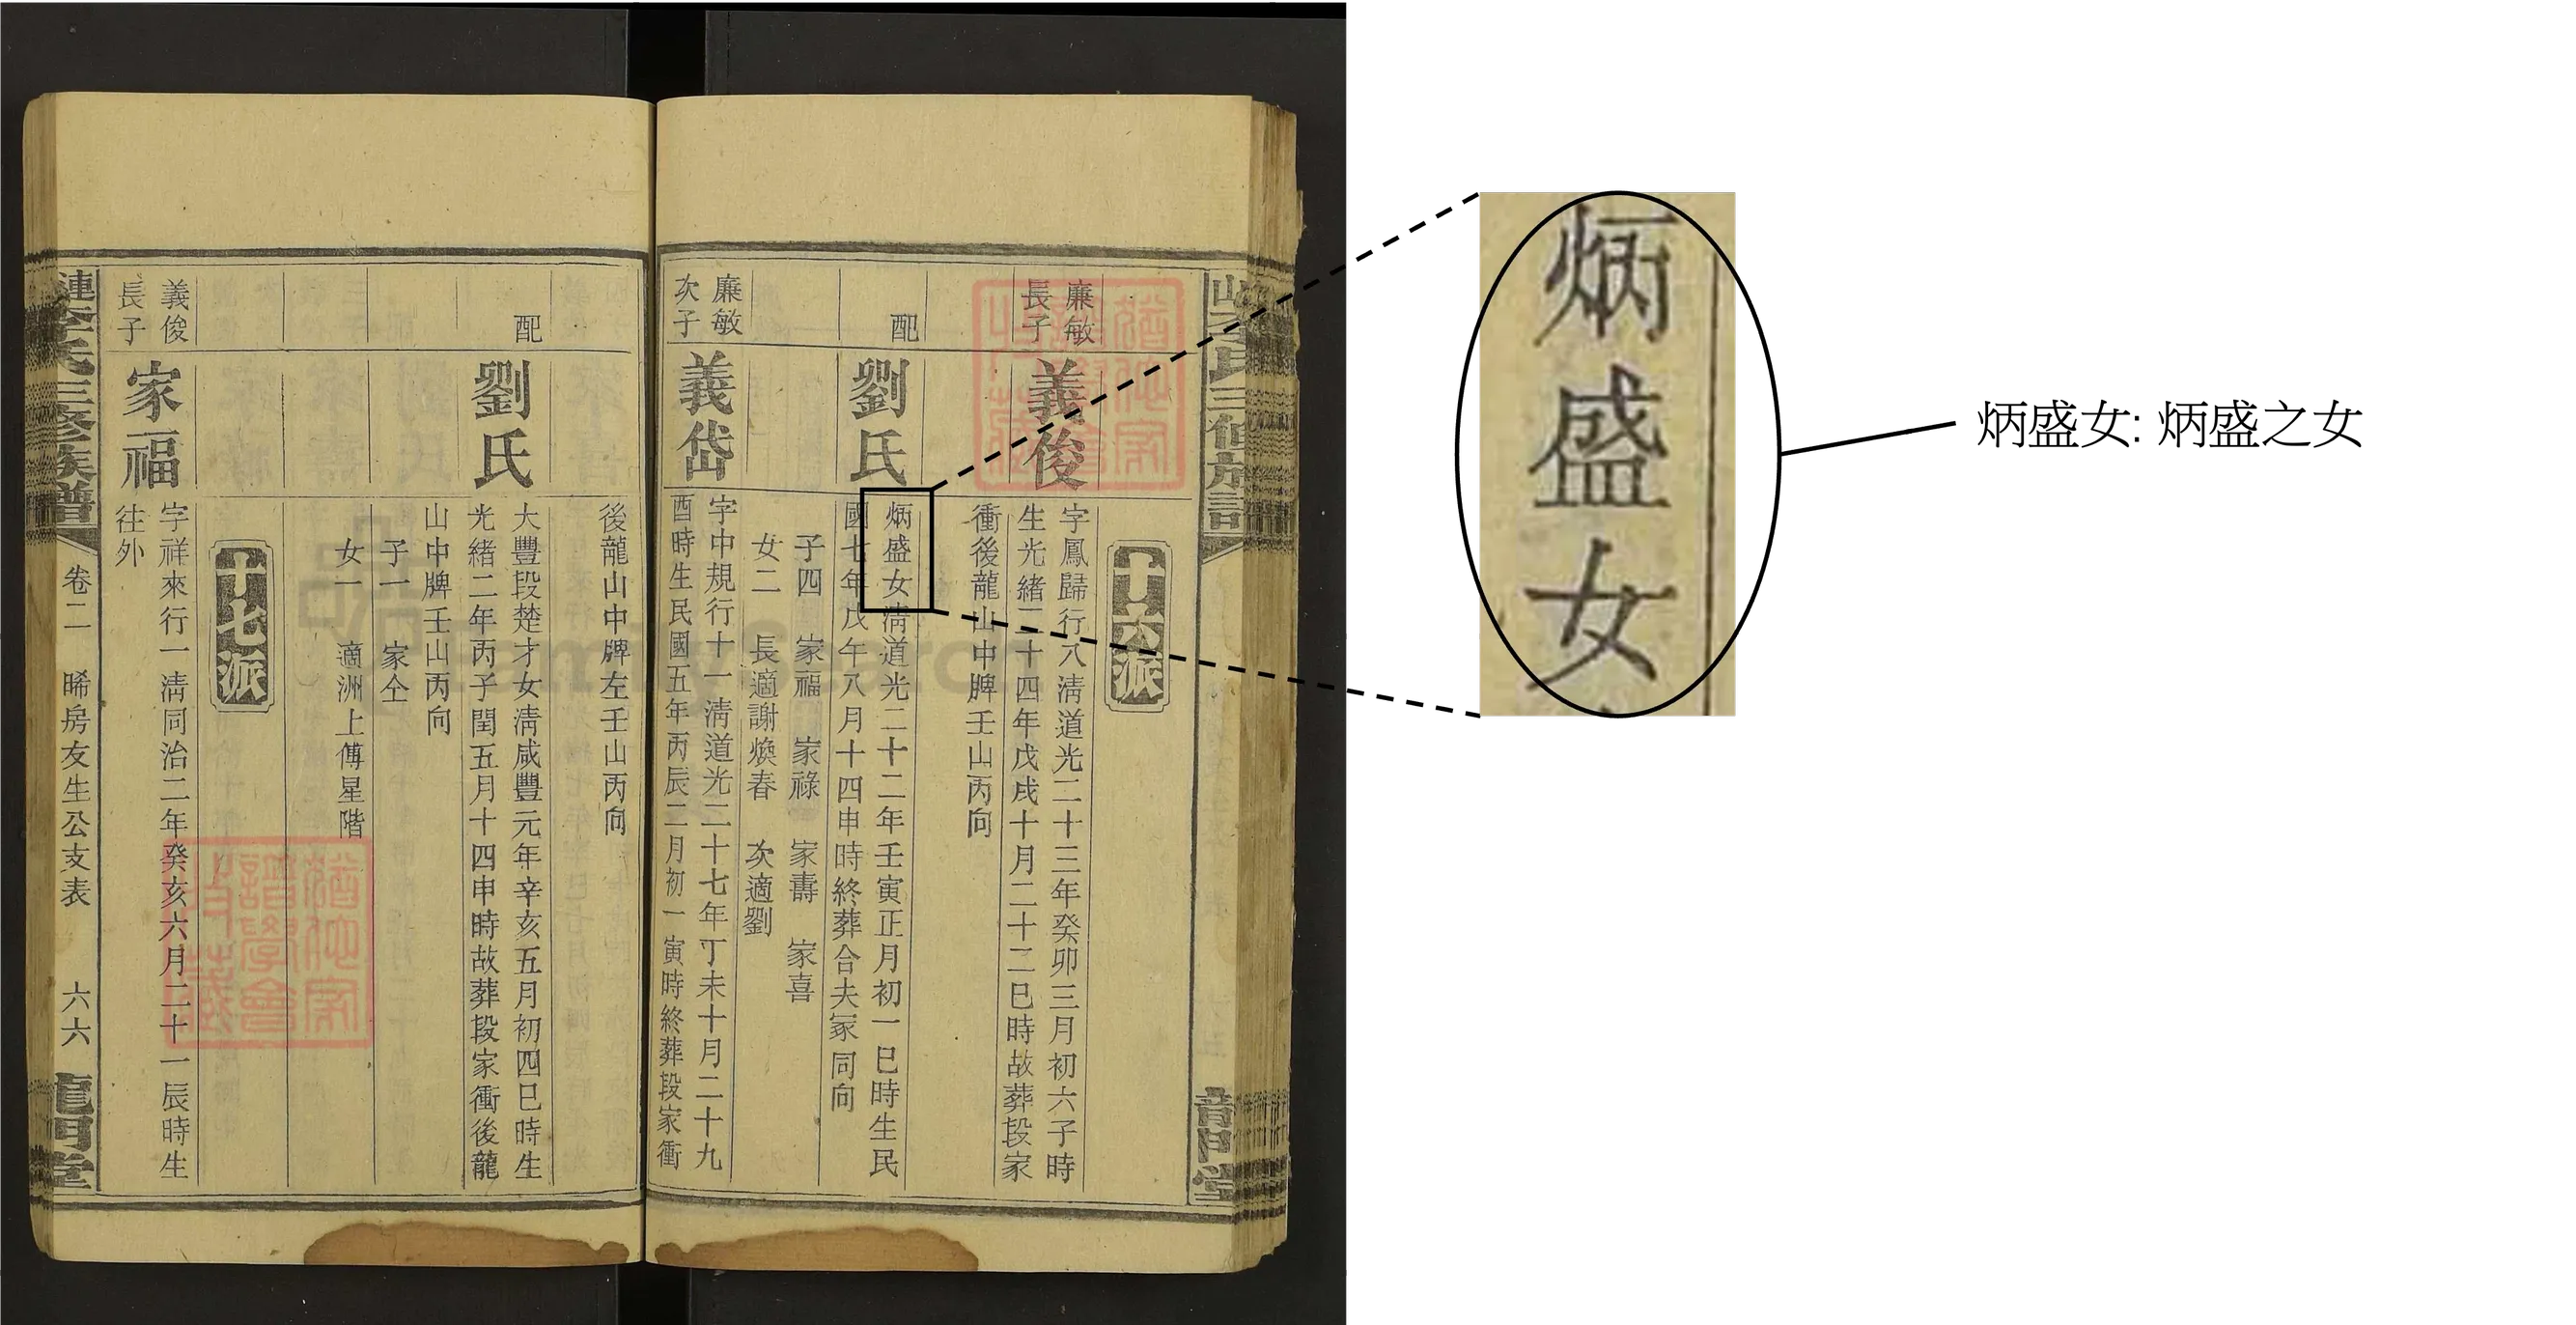 十六派
廉敏
長子
義俊
字鳳歸行八清道光二十三年癸卯三月初六子時
生光緒二十四年戊戌十月二十二巳時故葬段家
衝後龍山中牌壬山丙向
配
劉氏
炳盛女清道光二十二年壬寅正月初一巳時生民
國七年戊午八月十四申時終葬合夫冢同向
子四 家福 家祿 家壽 家喜
女二 長適謝煥春 次適劉
廉敏
次子
義岱
字中規行十一清道光二十七年丁未十月二十九
酉時生民國五年丙辰二月初一寅時終葬段家衝
後龍山中牌左壬山丙向
配
劉氏
大豐段楚才女清咸豐元年辛亥五月初四巳時生
光緒二年丙子閏五月十四申時故葬段家衝後龍
山中牌壬山丙向
子一 家仝
女一 適洲上傅星階
十七派
義俊
長子
家福
字祥來行一清同治二年癸亥六月二十一辰時生
往外
漣李氏三修族譜
卷二 晞房友生公支表 六六
龍門堂
炳盛女
炳盛女: 炳盛之女